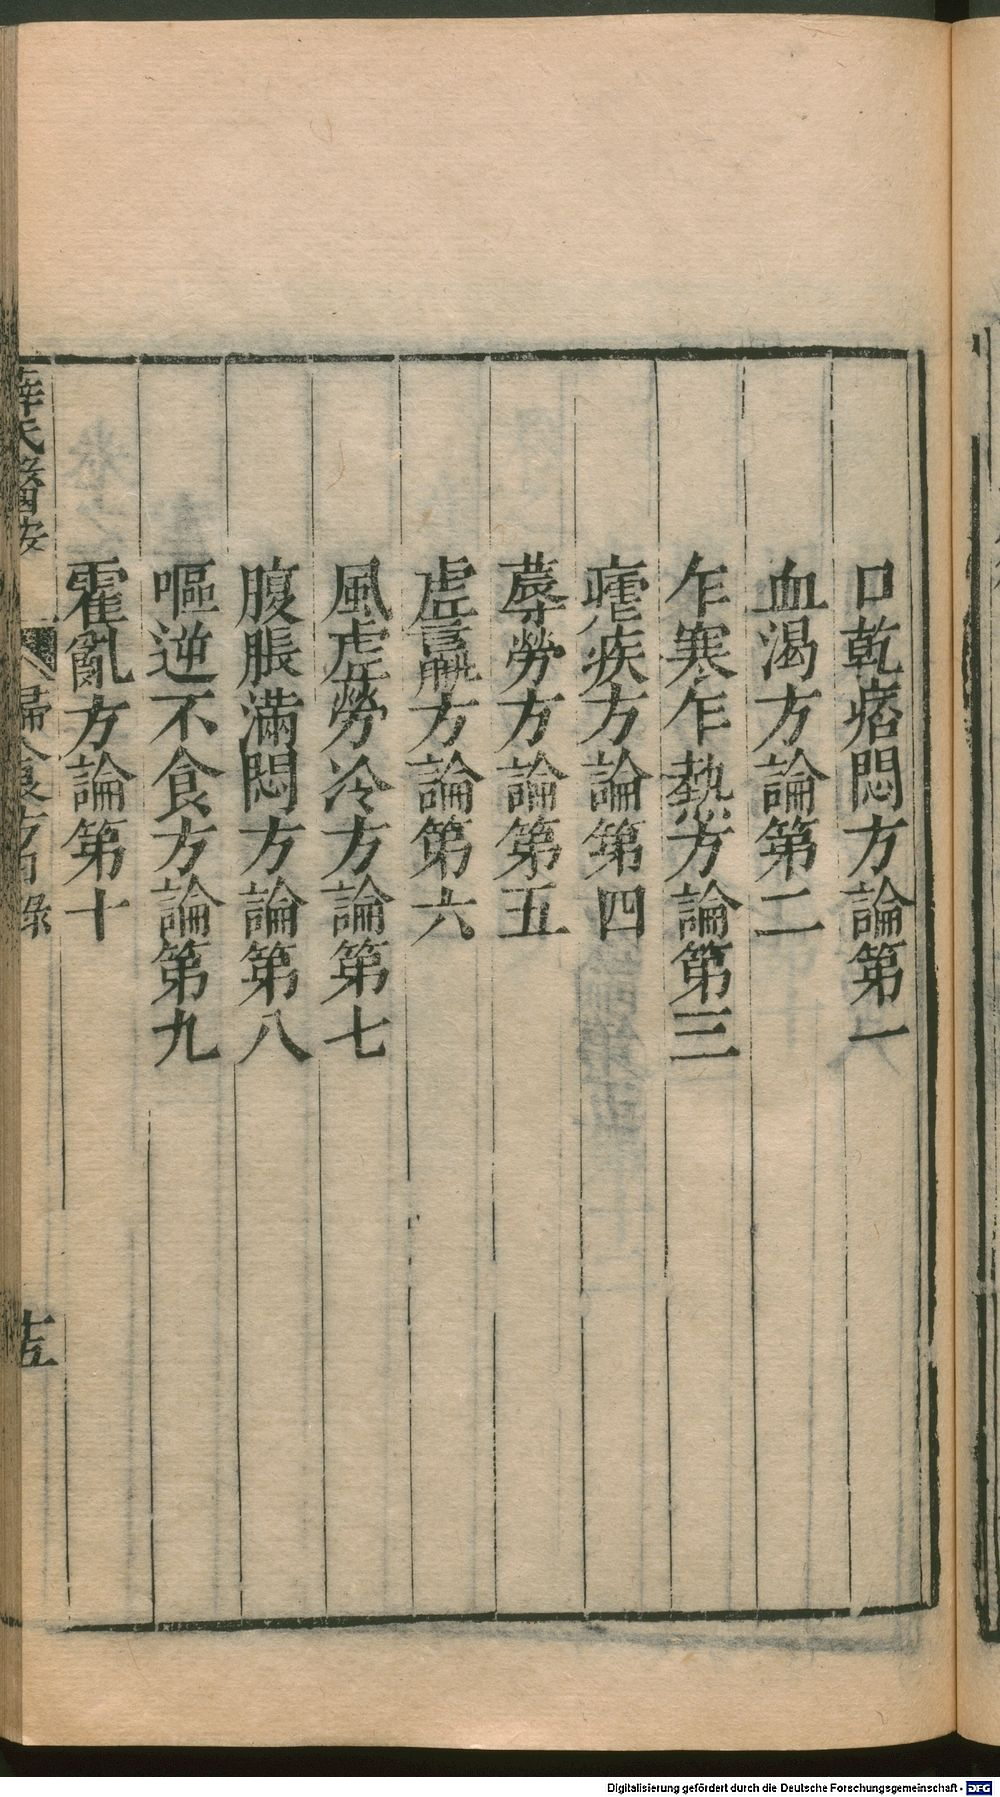 口乾痞悶方論第一
血渴方論第二
乍寒乍熱方論第三
瘧疾方論第四
蓐勞方論第五
虚羸方論第六
風虚勞冷方論第七
腹脹滿悶方論第八
嘔逆不食方論第九
霍亂方論第十
薛氏醫按
婦人良方目錄
十五
Digitalisierung gefördert durch die Deutsche Forschungsgemeinschaft - DFG